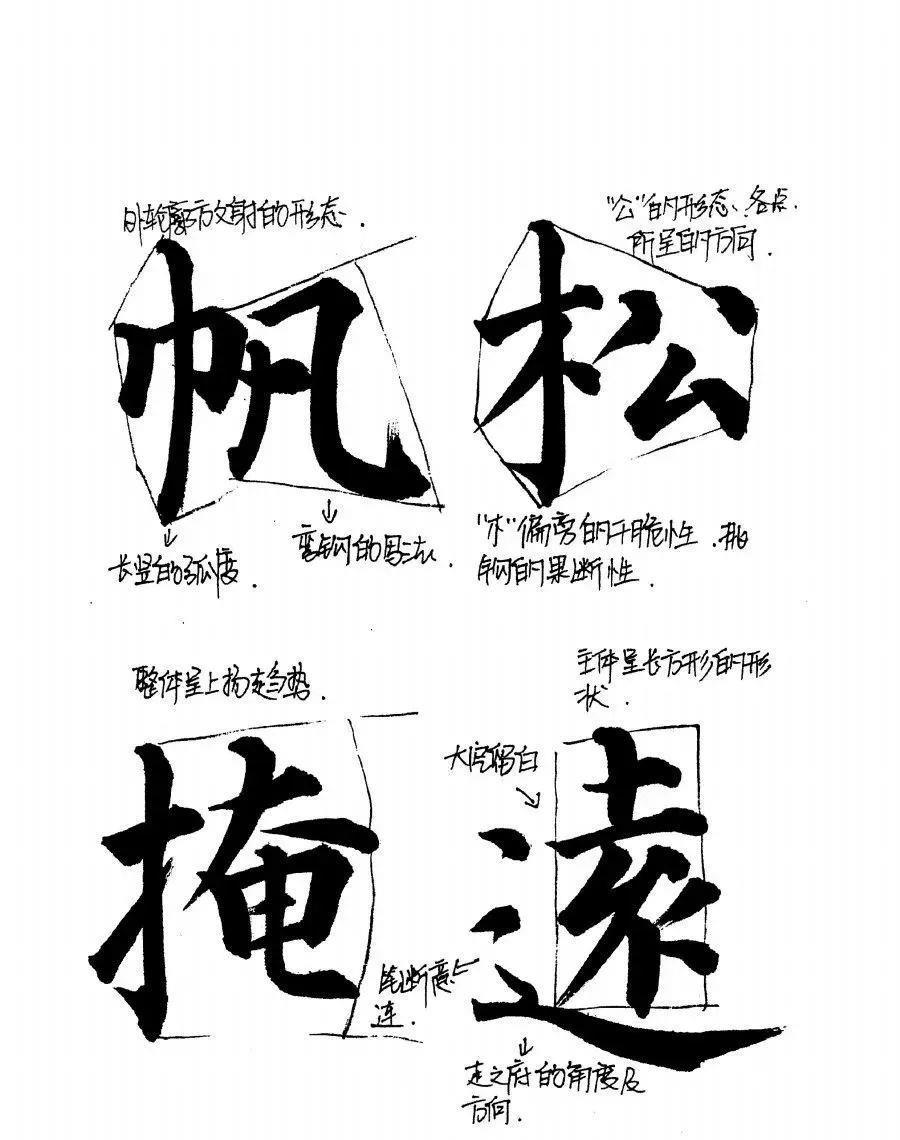 外轮廓方放射的形态.
"公"的形态、各点
所呈的方向.
帆
松
长竖的弧度.
弯钩的写法.
"木"偏旁的干脆性.挑
钩的果断性.
整体呈上扬走趋势.
主体呈长方形的形
状.
大空留白
掩
遠
笔断意
连.
走之府的角度及
方向.